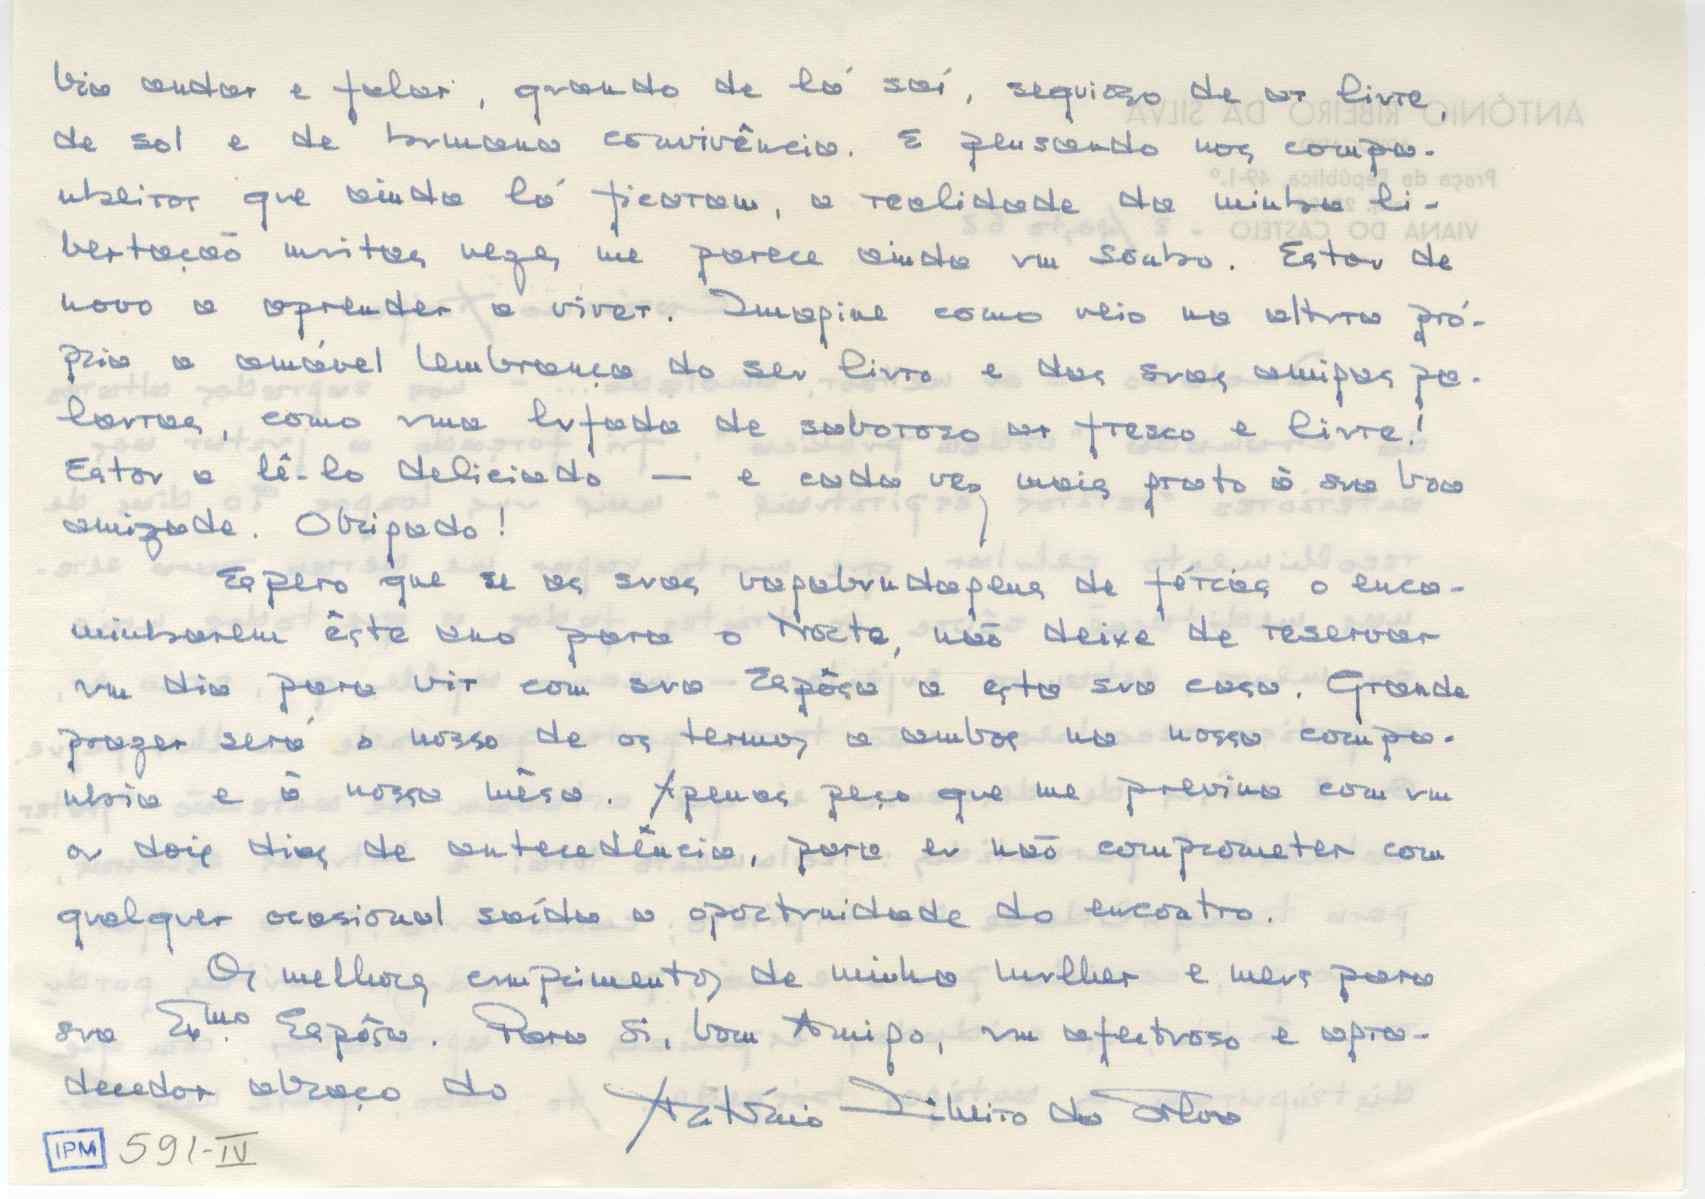 via andar e falar, quando de lá saí, sequioso de ar livre,
de sol e de humana convivência. E pensando nos compa-
nheiros que ainda lá ficaram, a realidade da minha li-
bertação muitas vezes me parece ainda um sonho. Estou de
novo a aprender a viver. Imagine como veio na altura pró-
pria a amável lembrança do seu livro e das suas amigas pa-
lavras, como uma lufada de saboroso ar fresco e livre!
Estou a lê-lo deliciado — e cada vez mais grato à sua boa
amizade. Obrigado!
Espero que se as suas vagabundagens de férias o enca-
minharem êste ano para o Norte, não deixe de reservar
um dia para vir com sua Espôsa a esta sua casa. Grande
prazer será o nosso de os termos a ambos na nossa compa-
nhia e à nossa mêsa. Apenas peço que me previna com um
ou dois dias de antecedência, para eu não comprometer com
qualquer ocasional saída a oportunidade do encontro.
Os melhores cumprimentos de minha mulher e meus para
sua Exma. Espôsa. Para Si, bom Amigo, um afectuoso e agra-
decedor abraço do António Ribeiro da Silva
IPM 591-IV
ANTÓNIO RIBEIRO DA SILVA
Praça da República, 49-1.º
VIANA DO CASTELO